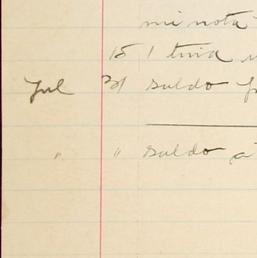 mi nota
15 1
Jul 31 saldo
" " saldo a